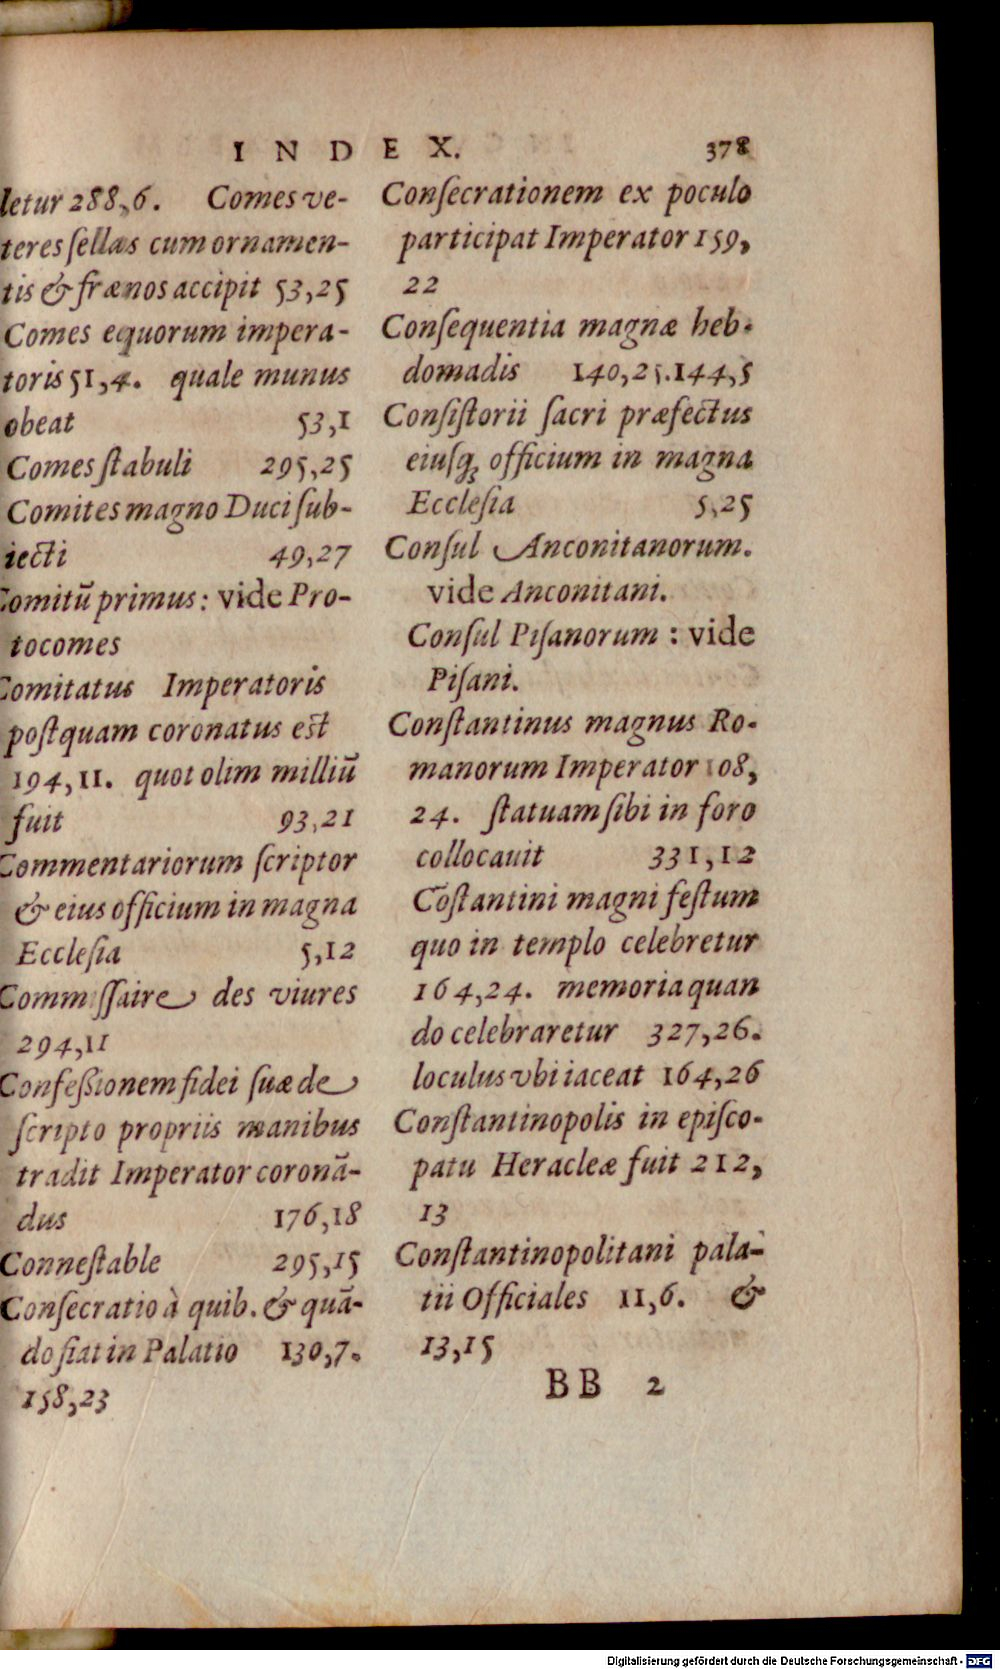 INDEX. 378
letur 288,6. Comes ve-
teres ſellas cum ornamen-
tis & frænos accipit 53,25
Comes equorum impera-
toris 51,4. quale munus
obeat 53,1
Comes ſtabuli 295,25
Comites magno Duci ſub-
iecti 49,27
Comitũ primus: vide Pro-
tocomes
Comitatus Imperatoris
poſtquam coronatus est
194,11. quot olim milliũ
fuit 93,21
Commentariorum ſcriptor
& eius officium in magna
Ecclesia 5,12
Commiſſaire des viures
294,11
Confeßionem fidei ſuæ de
ſcripto propriis manibus
tradit Imperator coronã-
dus 176,18
Conneſtable 295,15
Conſecratio à quib. & quã-
do fiat in Palatio 130,7.
158,23
Conſecrationem ex poculo
participat Imperator 159,
22
Conſequentia magnæ heb-
domadis 140,25.144,5
Conſiſtorii ſacri præfectus
eiuſq; officium in magna
Eccleſia 5,25
Conſul Anconitanorum.
vide Anconitani.
Conſul Piſanorum : vide
Piſani.
Conſtantinus magnus Ro-
manorum Imperator 108,
24. ſtatuam ſibi in foro
collocauit 331,12
Cõſtantini magni feſtum
quo in templo celebretur
164,24. memoria quan
do celebraretur 327,26.
loculus vbi iaceat 164,26
Conſtantinopolis in epiſco-
patu Heracleæ fuit 212,
13
Conſtantinopolitani pala-
tii Officiales 11,6. &
13,15
BB 2
Digitalisierung gefördert durch die Deutsche Forschungsgemeinschaft - DFG